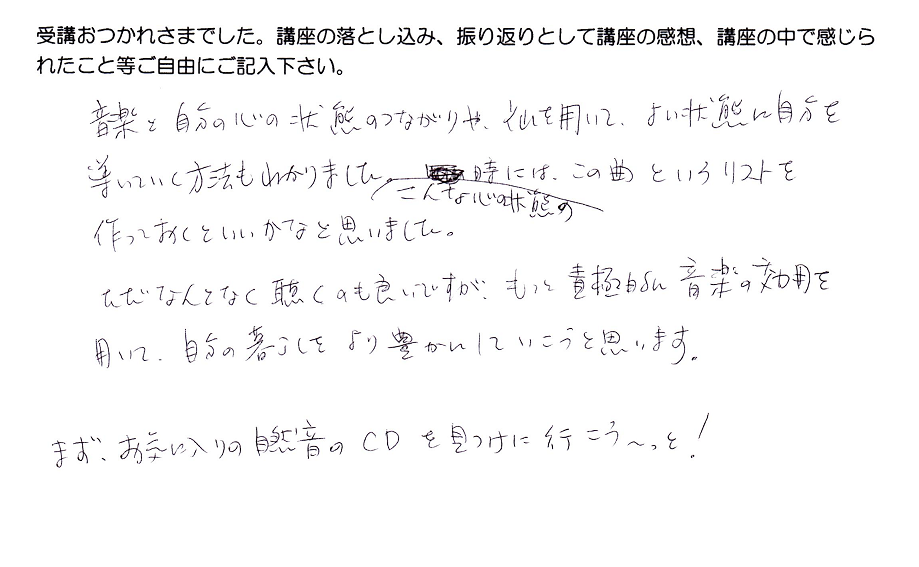 受講おつかれさまでした。講座の落とし込み、振り返りとして講座の感想、講座の中で感じら
れたこと等ご自由にご記入下さい。
音楽と自分の心の状態のつながりや、それを用いて、よい状態に自分を
導いていく方法もわかりました。こんな心の状態の時には、この曲というリストを
作っておくといいかなと思いました。
ただなんとなく聴くのも良いですが、もっと積極的に音楽の効用を
用いて、自分の暮らしをより豊かにしていこうと思います。
まず、お気に入りの自然音のCDを見つけに行こう〜っと!